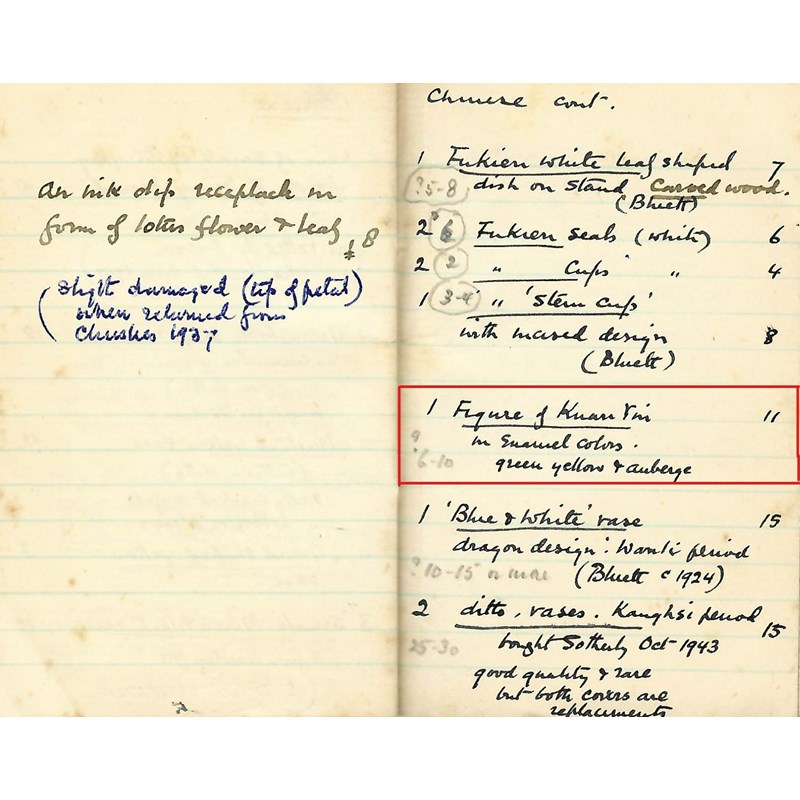 An ink dip receptacle in
form of lotus flower & leaf
8
(slight damaged (tip of petal)
when returned from
1937
Chinese cont.
1 Fukien white leaf shaped 7
?5-8 dish on stand Carved wood.
(Bluett)
2 ?6 Fukien seals (white) 6
2 2 " Cups " " 4
1 3-4 " 'Stem Cup'
with incised design 8
(Bluett)
1 Figure of Kuan Yin 11
in Enamel colors.
?6-10 green yellow & auberge
1 'Blue & White' vase 15
dragon design. Wanli period
?10-15 or more (Bluett c 1924)
2 ditto. vases. Kanghsi period 15
25-30 bought Sotheby Oct 1943
good quality & rare
but both covers are
replacements